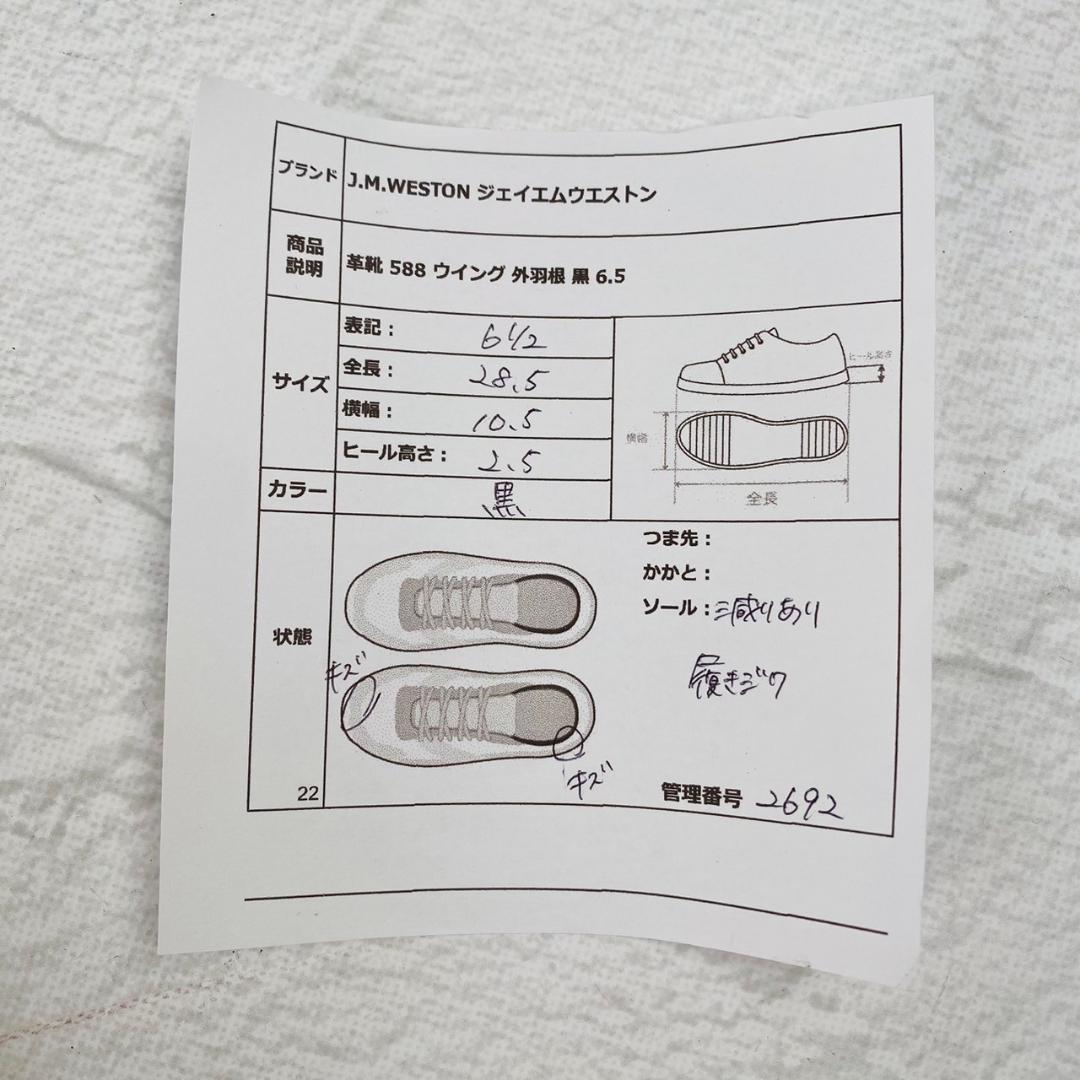 ブランド J.M.WESTON ジェイエムウエストン
商品
説明
革靴 588 ウイング 外羽根 黒 6.5
サイズ
表記： 6 1/2
全長： 28.5
横幅： 10.5
ヒール高さ： 2.5
ヒール高さ
横幅
全長
カラー 黒
状態
つま先：
かかと：
ソール：減りあり
履きジワ
キズ
キズ
22
管理番号 2692